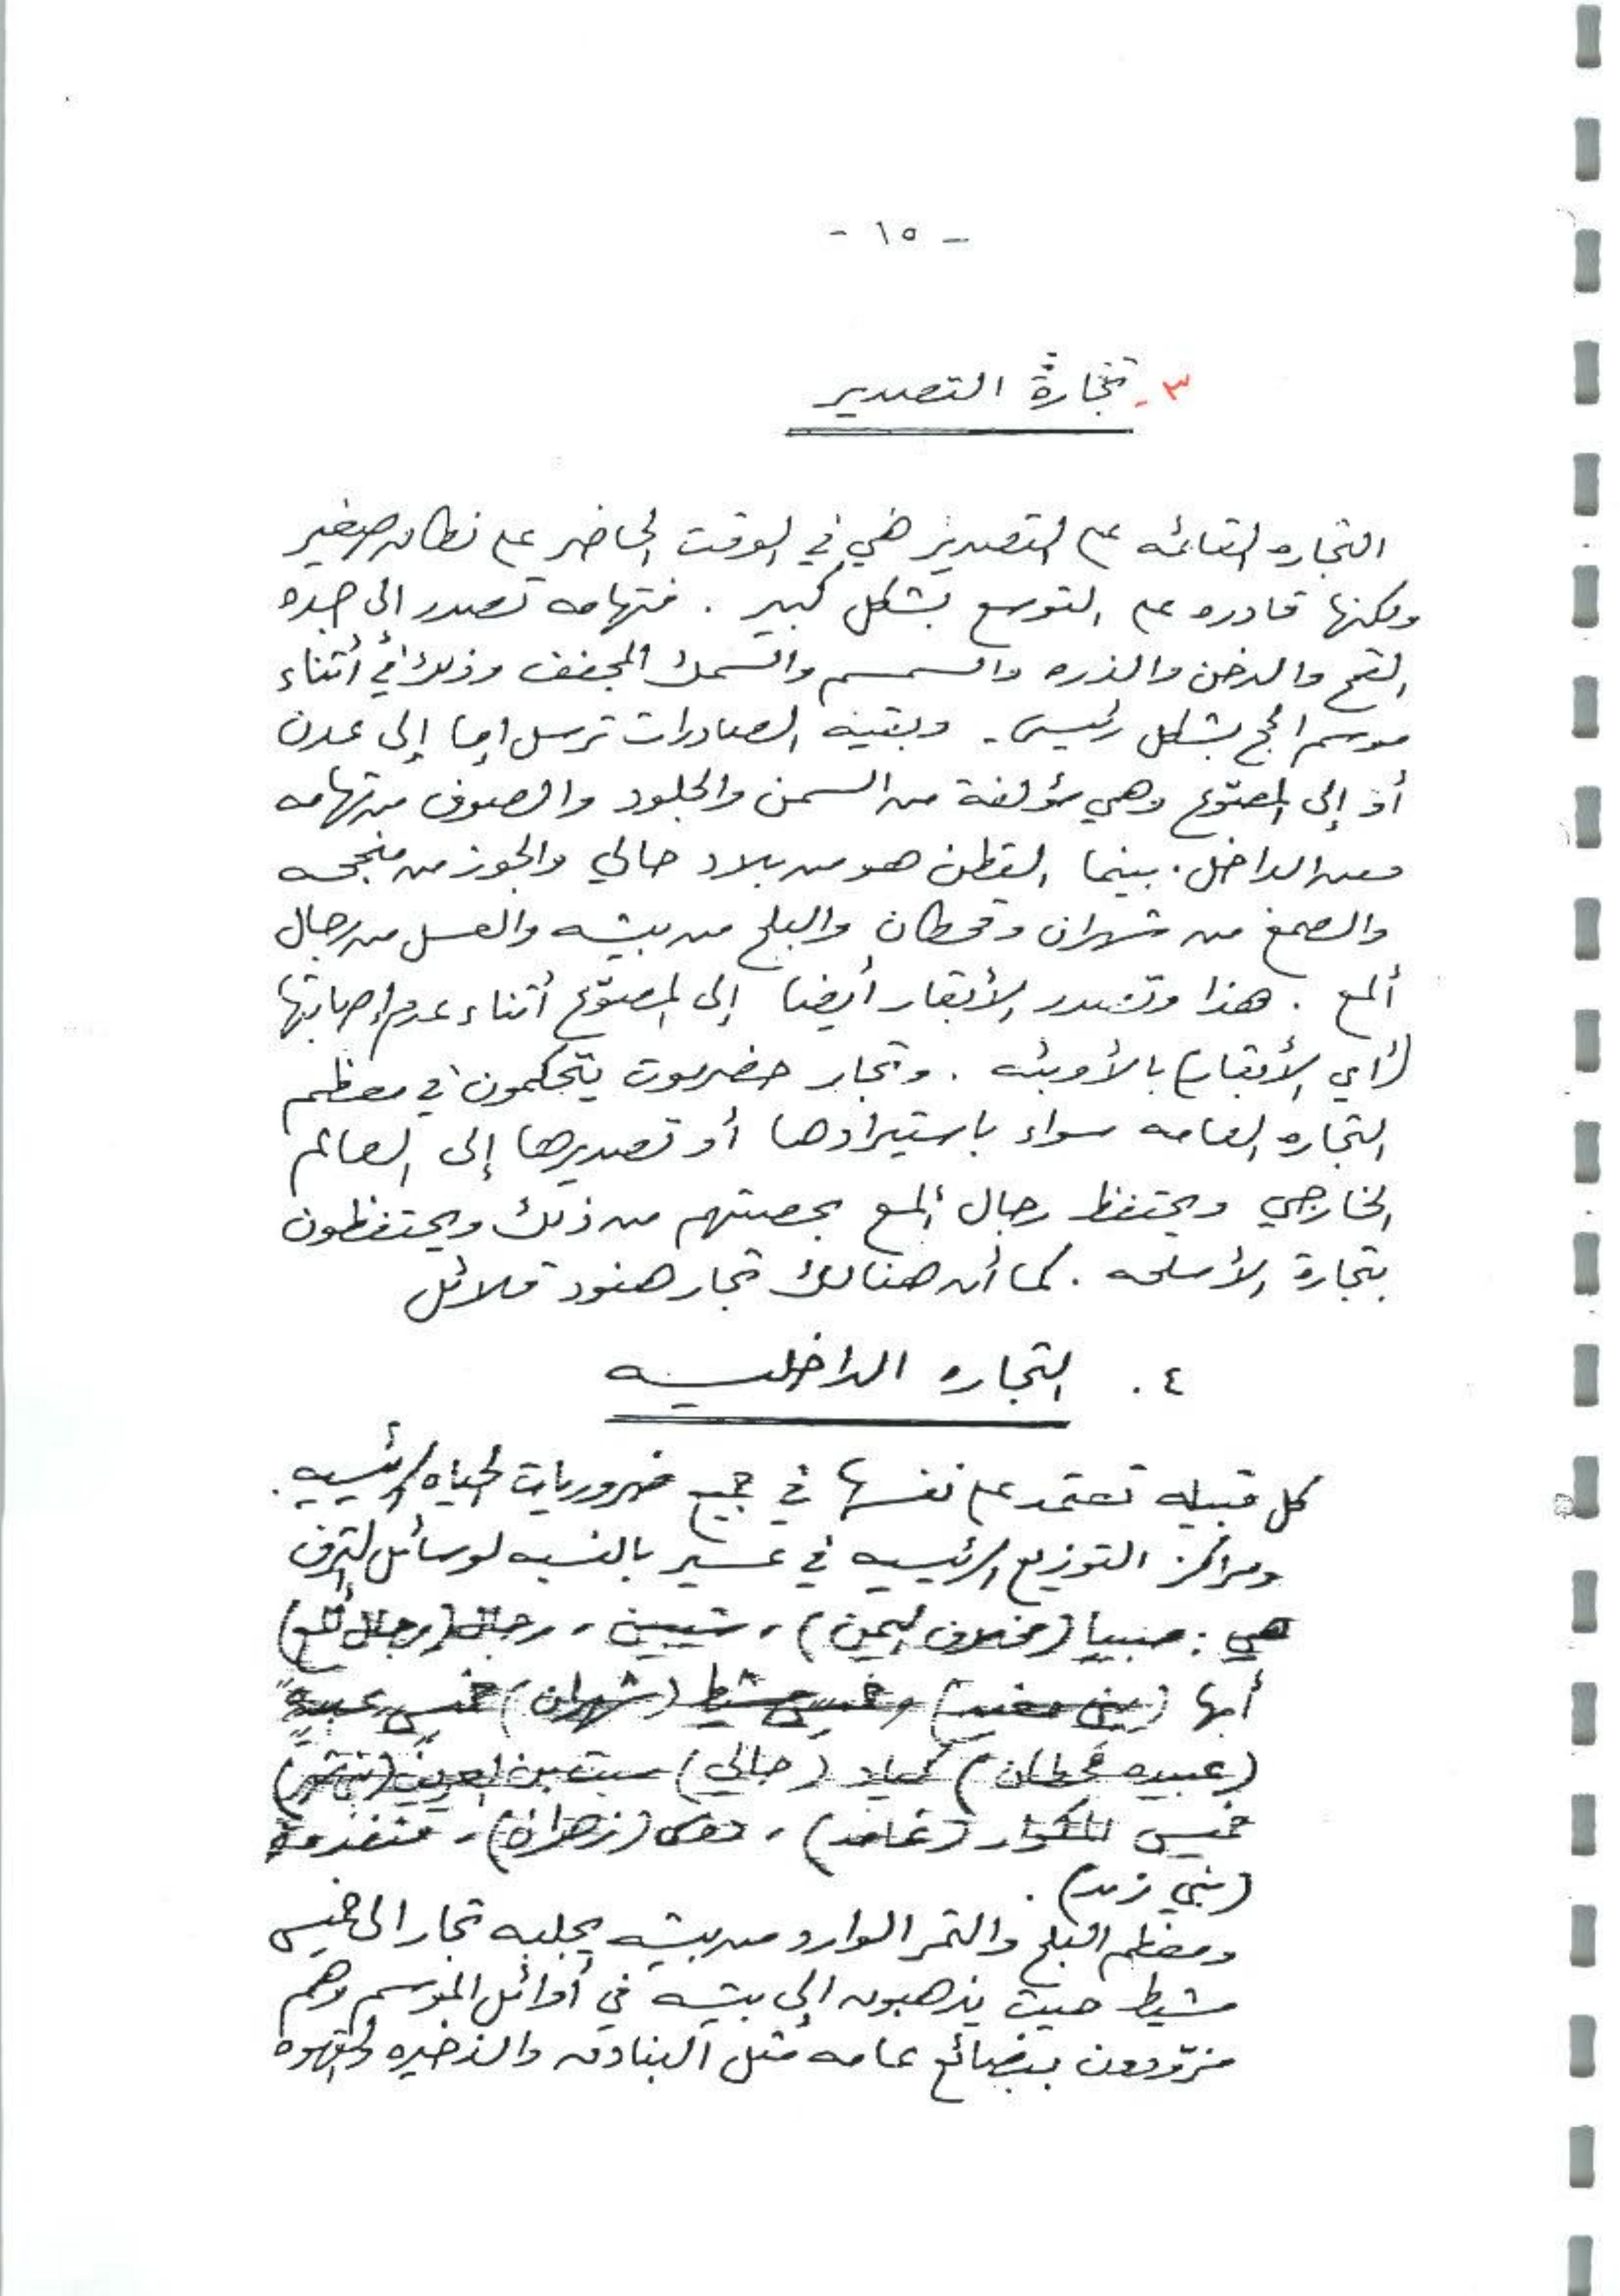 - ١٥ -
٣- تجارة التصدير
التجاره القائمه على التصدير هي في الوقت الحاضر على نطاق صغير
ولكنها قادره على التوسع بشكل كبير . فتهامه تصدر الى جده
القمح والدخن والذره والسمسم والسمك المجفف وذلك في أثناء
موسم الحج بشكل رئيسي . وبقية الصادرات ترسل إما إلى عدن
أو إلى المصوّع وهي مؤلفة من السمن والجلود والصوف من تهامه
ومن الداخل . بينما القطن هو من بلاد حالي والجوز من منجحه
والصمغ من شهران وقحطان والبلح من بيشه والعسل من رجال
ألمع . هذا وتصدر الأبقار أيضا إلى المصوّع أثناء عدم إصابتها
(أي الأبقار) بالأوبئه . وتجار حضرموت يتحكمون في معظم
التجاره العامه سواء باستيرادها أو تصديرها إلى العالم
الخارجي ويحتفظ رجال ألمع بحصتهم من ذلك ويحتفظون
بتجارة الأسلحه . كما أن هنالك تجار هنود قلائل
٤ . التجاره الداخليه
كل قبيله تعتمد على نفسها في جميع ضروريات الحياه الرئيسيه .
ومراكز التوزيع الرئيسيه في عسير بالنسبه لوسائل الترف
هي : صبيا (مخلاف اليمن) ، شعبين ، رجال (رجال ألمع)
أبها (بني مغيد) ، خميس مشيط (شهران) خميس عبيده
(عبيده قحطان) كياد (حالي) سبت بن العريف
خميس (غامد) ، دوس (زهران) ، قنفذه
(بني زيد) .
ومعظم البلح والتمر الوارد من بيشه يجلبه تجار الى خميس
مشيط حيث يذهبون إلى بيشه في أوائل الموسم وهم
مزوّدون ببضائع عامه مثل البنادق والذخيره والقهوه